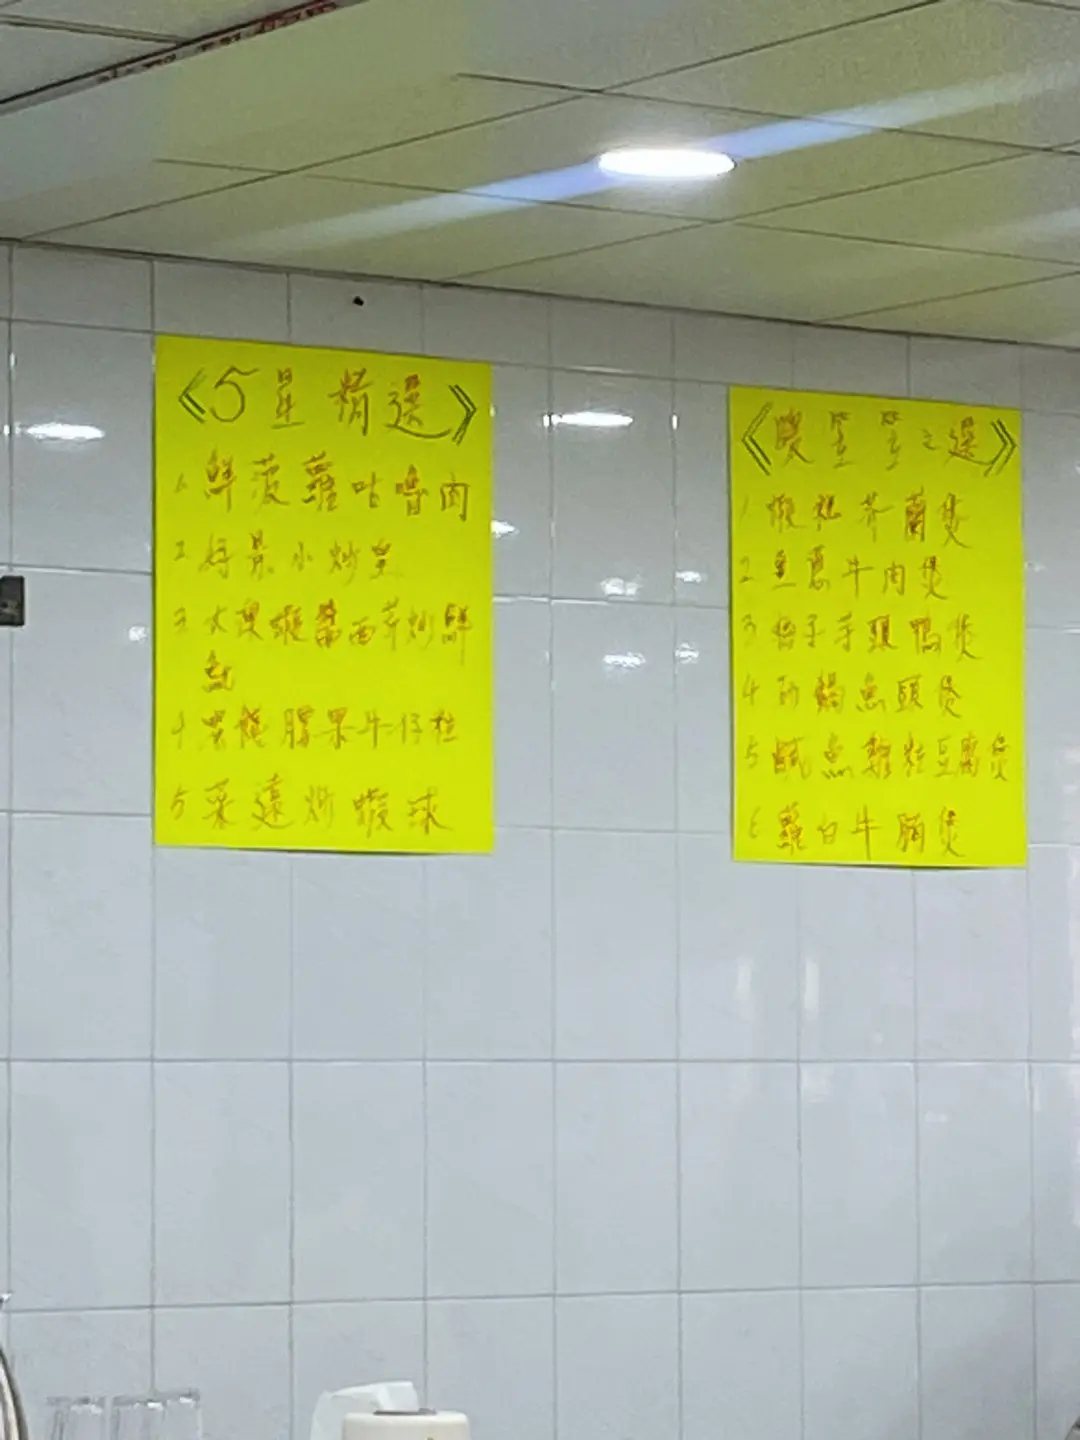 《5星精選》
1. 鮮菠蘿咕嚕肉
2 好景小炒皇
3 大澳蝦醬西芹炒鮮
魷
4 黑椒腰果牛仔粒
5 菜遠炒蝦球
《暖笠笠之選》
1 蝦羔芥蘭煲
2 魚蔥牛肉煲
3 梅子芋頭鴨煲
4 砂鍋魚頭煲
5 鹹魚雞粒豆腐煲
6 蘿白牛腩煲